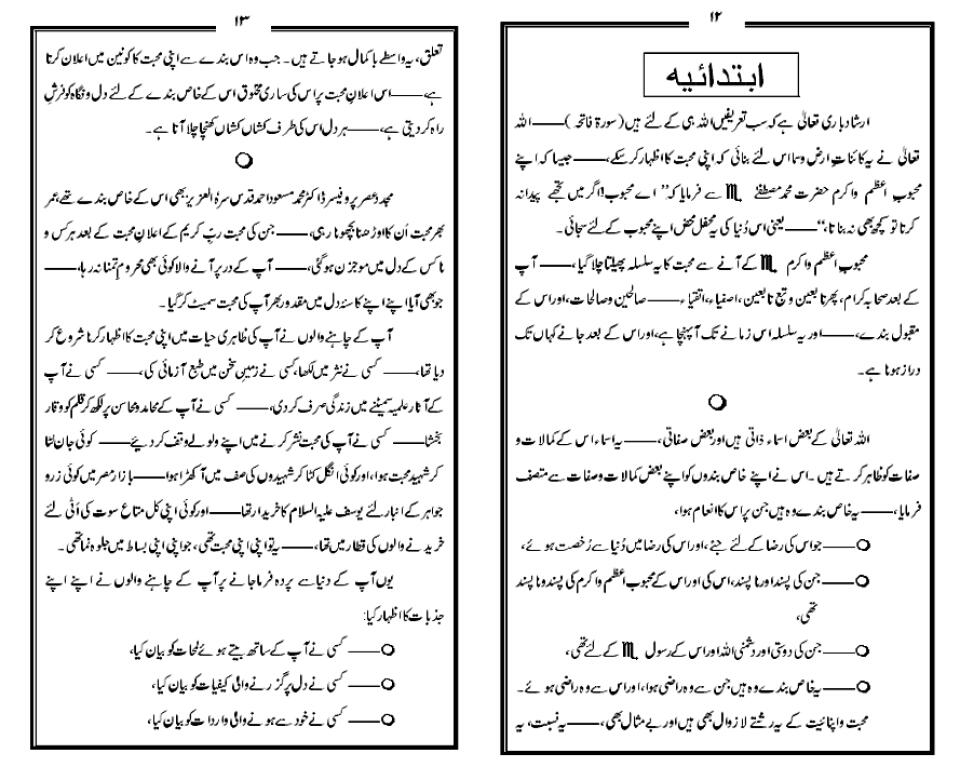 ۱۲
ابتدائیہ
ارشاد باری تعالیٰ ہے کہ سب تعریفیں اللہ ہی کے لئے ہیں (سورۃ فاتحہ) —— اللہ
تعالیٰ نے یہ کائنات ارض و سما اس لئے بنائی کہ اپنی محبت کا اظہار کر سکے، —— جیسا کہ اپنے
محبوب اعظم و اکرم حضرت محمد مصطفےٰ ♏ سے فرمایا کہ ”اے محبوب! اگر میں تجھے پیدا نہ
کرتا تو کچھ بھی نہ بناتا،“ —— یعنی اس دُنیا کی یہ محفل محض اپنے محبوب کے لئے سجائی۔
محبوب اعظم و اکرم ♏ کے آنے سے محبت کا یہ سلسلہ پھیلتا چلا گیا، —— آپ
کے بعد صحابہ کرام، پھر تابعین و تبع تابعین، اصفیاء، اتقیاء —— صالحین و صالحات، اور اس کے
مقبول بندے، —— اور یہ سلسلہ اس زمانے تک آ پہنچا ہے، اور اس کے بعد جانے کہاں تک
دراز ہونا ہے۔
اللہ تعالیٰ کے بعض اسماء ذاتی ہیں اور بعض صفاتی، —— یہ اسماء اس کے کمالات و
صفات کو ظاہر کرتے ہیں۔ اس نے اپنے خاص بندوں کو اپنے بعض کمالات و صفات سے متصف
فرمایا، —— یہ خاص بندے وہ ہیں جن پر اس کا انعام ہوا،
○—— جو اس کی رضا کے لئے جئے، اور اس کی رضا میں دُنیا سے رُخصت ہوئے،
○—— جن کی پسند اور نا پسند، اس کی اور اس کے محبوب اعظم و اکرم کی پسند و نا پسند
تھی،
○—— جن کی دوستی اور دشمنی اللہ اور اس کے رسول ♏ کے لئے تھی،
○—— یہ خاص بندے وہ ہیں جن سے وہ راضی ہوا، اور اس سے وہ راضی ہوئے۔
محبت و اپنائیت کے یہ رشتے لازوال بھی ہیں اور بے مثال بھی، —— یہ نسبت، یہ
۱۳
تعلق، یہ واسطے با کمال ہو جاتے ہیں۔ جب وہ اس بندے سے اپنی محبت کا کونین میں اعلان کرتا
ہے، —— اس اعلانِ محبت پر اس کی ساری مخلوق اس کے خاص بندے کے لئے دل و نگاہ کو فرشِ
راہ کر دیتی ہے، —— ہر دل اس کی طرف کشاں کشاں کھنچا چلا آتا ہے۔
مجدد عصر پروفیسر ڈاکٹر محمد مسعود احمد قدس سرہٗ العزیز بھی اس کے خاص بندے تھے، عمر
بھر محبت اُن کا اوڑھنا بچھونا رہی، —— جن کی محبت ربّ کریم کے اعلانِ محبت کے بعد ہر کس و
نا کس کے دل میں موجزن ہو گئی، —— آپ کے در پر آنے والا کوئی بھی محروم تمنا نہ رہا، ——
جو بھی آیا اپنے اپنے کاسئہ دل میں مقدور بھر آپ کی محبت سمیٹ کر گیا۔
آپ کے چاہنے والوں نے آپ کی ظاہری حیات میں اپنی محبت کا اظہار کرنا شروع کر
دیا تھا، —— کسی نے نثر میں لکھا، کسی نے زمینِ سخن میں طبع آزمائی کی، —— کسی نے آپ
کے آثار علمیہ سمیٹنے میں زندگی صرف کر دی، —— کسی نے آپ کے محامد و محاسن پر لکھ کر قلم کو وقار
بخشا —— کسی نے آپ کی محبت نشر کرنے میں اپنے ولولے وقف کر دیئے —— کوئی جان لٹا
کر شہید محبت ہوا، اور کوئی انگلی کٹا کر شہیدوں کی صف میں آ کھڑا ہوا —— بازارِ مصر میں کوئی زر و
جواہر کے انبار لئے یوسف علیہ السلام کا خریدار تھا —— اور کوئی اپنی کل متاع سوت کی اَٹی لئے
خریدنے والوں کی قطار میں تھا، —— یہ تو اپنی اپنی محبت تھی، جو اپنی اپنی بساط میں جلوہ نما تھی۔
یوں آپ کے دنیا سے پردہ فرما جانے پر آپ کے چاہنے والوں نے اپنے اپنے
جذبات کا اظہار کیا:
○—— کسی نے آپ کے ساتھ بیتے ہوئے لمحات کو بیان کیا،
○—— کسی نے دل پر گزرنے والی کیفیات کو بیان کیا،
○—— کسی نے خود سے ہونے والی واردات کو بیان کیا،